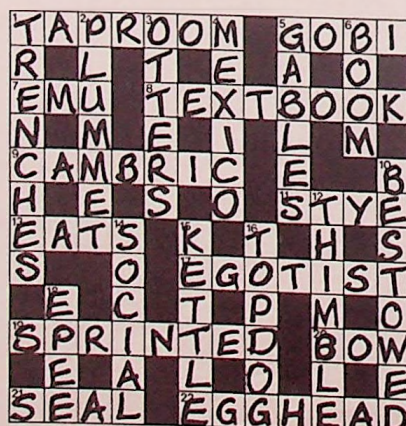 TAPROOM GOBI
R L T E A O
EMU TEXTBOOK
N M E I L M
CAMBRIC E B
H E S O STYE
EATS K T H S
S O EGOTIST
E C T P M O
SPRINTED BOW
E A L O L E
SEAL EGGHEAD